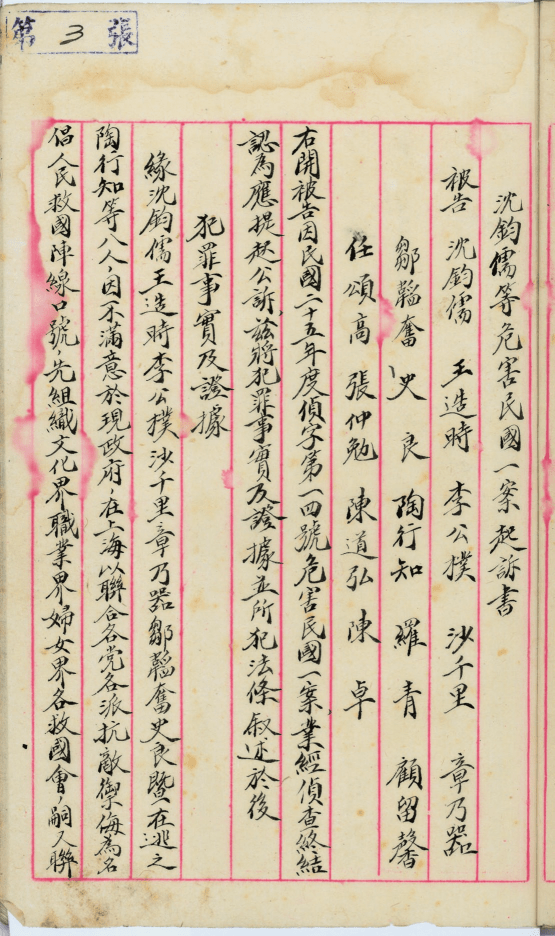 第 3 張
沈鈞儒等危害民國一案起訴書
被告 沈鈞儒 王造時 李公樸 沙千里 章乃器
鄒韜奮 史良 陶行知 羅青 顧留馨
任頌高 張仲勉 陳道弘 陳卓
右開被告因民國二十五年度偵字第一四號危害民國一案，業經偵查終結
認為應提起公訴，茲將犯罪事實及證據並所犯法條叙述於後
犯罪事實及證據
緣沈鈞儒王造時李公樸沙千里章乃器鄒韜奮史良暨在逃之
陶行知等八人，因不滿意於現政府，在上海以聯合各党各派抗敵禦侮為名
倡人民救國陣線口號，先組織文化界職業界婦女界各救國會，嗣又聯